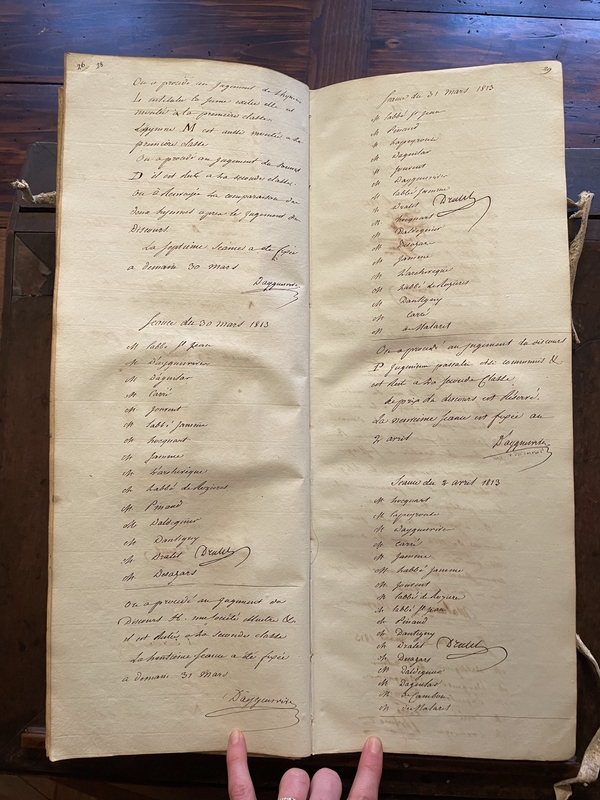 26 28
On a procédé au Jugement de l'hymne
la première classe
L'hymne M est aussi montée a la
première classe
On a procédé au Jugement du
D il est resté a la seconde classe.
on a Renvoyé la comparaison de
deux hymnes après le Jugement du
Discours
La Septième Seance a été fixée
a demain 30 mars
Dayguesvive
Seance du 30 mars 1813
M labbé St Jean
M Dayguesvive
M Daguilar
M Carré
M Jouvent
M labbé Jamme
M hocquart
M Jamme
M Larchevêque
M labbé de Rozieres
M Pinaud
M Daldeguier
M Dantigny
M Dralet Dralet
M Desazars
On a procédé au Jugement du
Discours H. une Société illustre &c
il est resté a la Seconde Classe
La huitieme Seance a été fixée
a demain 31 mars
Dayguesvive
29
Seance du 31 mars 1813
M labbé St Jean
M Pinaud
M Lapeyrouse
M Daguilar
M Jouvent
M Dayguesvive
M labbé Jamme
M Dralet Dralet
M hocquart
M Daldeguier
M Desazars
M Jamme
M Larchevêque
M labbé de Rozieres
M Dantigny
M Carré
M de Malaret
On a procédé au Jugement du discours
est resté a la Seconde Classe
le prix du discours est Réservé.
La neuvieme Seance est fixée au
2 avril
Dayguesvive
Seance du 2 avril 1813
M hocquart
M Lapeyrouse
M Dayguesvive
M Carré
M Jamme
M labbé Jamme
M Jouvent
M labbé de Roziere
M labbé St Jean
M Pinaud
M Dantigny
M Dralet Dralet
M Desazars
M Daldeguier
M Daguilar
M de Cambon
M de Malaret